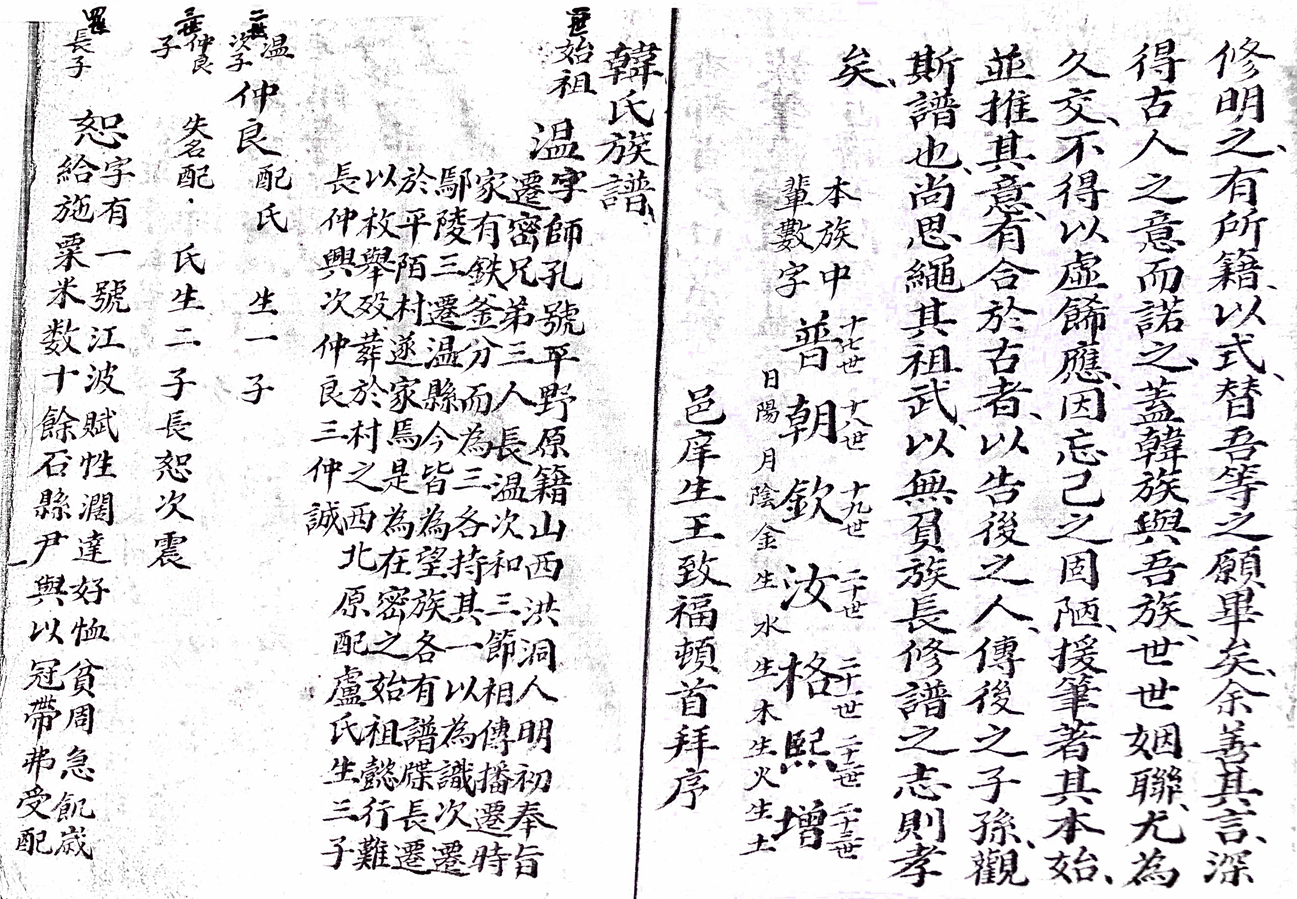 修明之、有所籍、以式替吾等之願畢矣、余善其言、深
得古人之意而諾之、蓋韓族與吾族、世世姻聯、尤為
久交、不得以虛餙應、因忘己之固陋、援筆著其本始、
並推其意、有合於古者、以告後之人、傳後之子孫、觀
斯譜也、尚思繩其祖武、以無負族長修譜之志則孝
矣、
本族中
輩數字
十七世 十八世 十九世 二十世 二十一世 二十二世 二十三世
普朝欽汝格熙增
日陽月陰金生水生木生火生土
邑庠生王致福頓首拜序
韓氏族譜、
一世始祖
温字師孔號平野原籍山西洪洞人明初奉旨
遷密兄弟三人長温次和三節相傳播遷時
家有鉄釜分而為三各持其一以為識次遷
鄢陵三遷温縣今皆為望族各有譜牒長遷
於平陌村遂家焉是為在密之始祖懿行難
以枚舉歿葬於村之西北原配盧氏生三子
長仲興次仲良三仲誠
二世
温次子
仲良配 氏 生一子
三世
仲良子
失名配 氏生二子長恕次震
四世
長子
恕字有一號江波賦性濶達好恤貧周急飢歲
給施粟米数十餘石縣尹與以冠帶弗受配